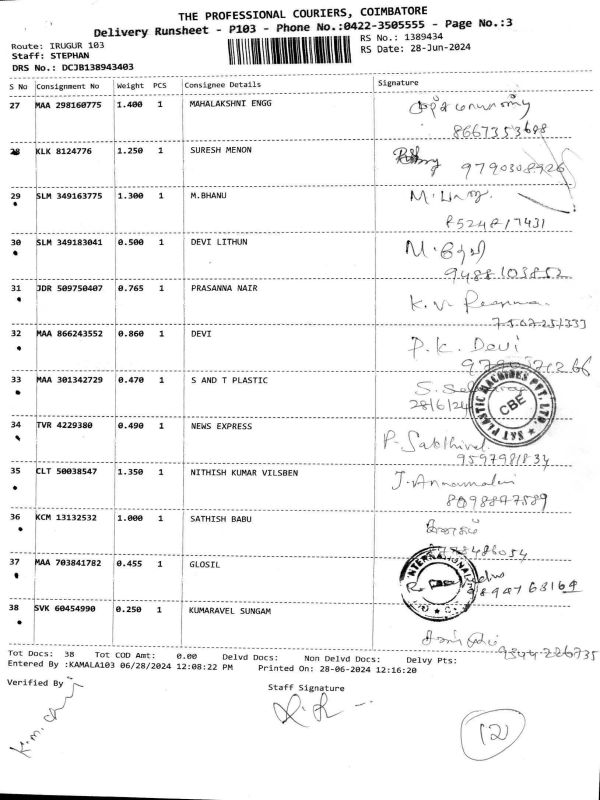 THE PROFESSIONAL COURIERS, COIMBATORE
Delivery Runsheet - P103 - Phone No.:0422-3505555 - Page No.:3
Route: IRUGUR 103
RS No.: 1389434
Staff: STEPHAN
RS Date: 28-Jun-2024
DRS No.: DCJB138943403
S No Consignment No Weight PCS Consignee Details Signature
27 MAA 298160775 1.400 1 MAHALAKSHNI ENGG
8667353698
28 KLK 8124776 1.250 1 SURESH MENON
9790308926
29 SLM 349163775 1.300 1 M.BHANU
M.
8524817431
30 SLM 349183041 0.500 1 DEVI LITHUN
M.
9488103852
31 JDR 509750407 0.765 1 PRASANNA NAIR
K.V.
7507251333
32 MAA 866243552 0.860 1 DEVI
P.K. Devi
33 MAA 301342729 0.470 1 S AND T PLASTIC
28/6/24
S&T PLASTIC MACHINES PVT. LTD.
CBE
34 TVR 4229380 0.490 1 NEWS EXPRESS
P. Sakthivel
9597981834
35 CLT 50038547 1.350 1 NITHISH KUMAR VILSBEN
J. Annamalai
8098897589
36 KCM 13132532 1.000 1 SATHISH BABU
37 MAA 703841782 0.455 1 GLOSIL
INTERNATIONAL
9894768164
38 SVK 60454990 0.250 1 KUMARAVEL SUNGAM
9344226735
Tot Docs: 38 Tot COD Amt: 0.00 Delvd Docs: Non Delvd Docs: Delvy Pts:
Entered By :KAMALA103 06/28/2024 12:08:22 PM Printed On: 28-06-2024 12:16:20
Verified By
Staff Signature
12